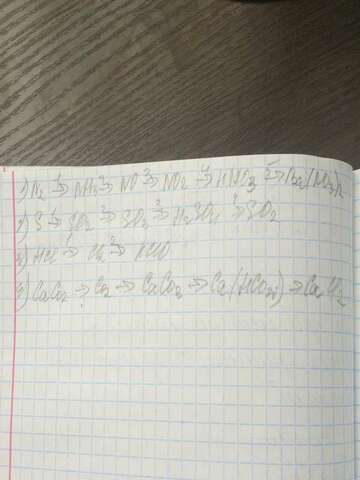 1) N2 1→ NH3 2→ NO 3→ NO2 4→ HNO3 5→ Ba(NO3)2
2) S 1→ SO2 2→ SO3 3→ H2SO4 4→ SO2
3) HCl 1→ Cl2 2→ HClO
4) CaCO3 → CO2 → CaCO3 → Ca(HCO3) → CaCl2